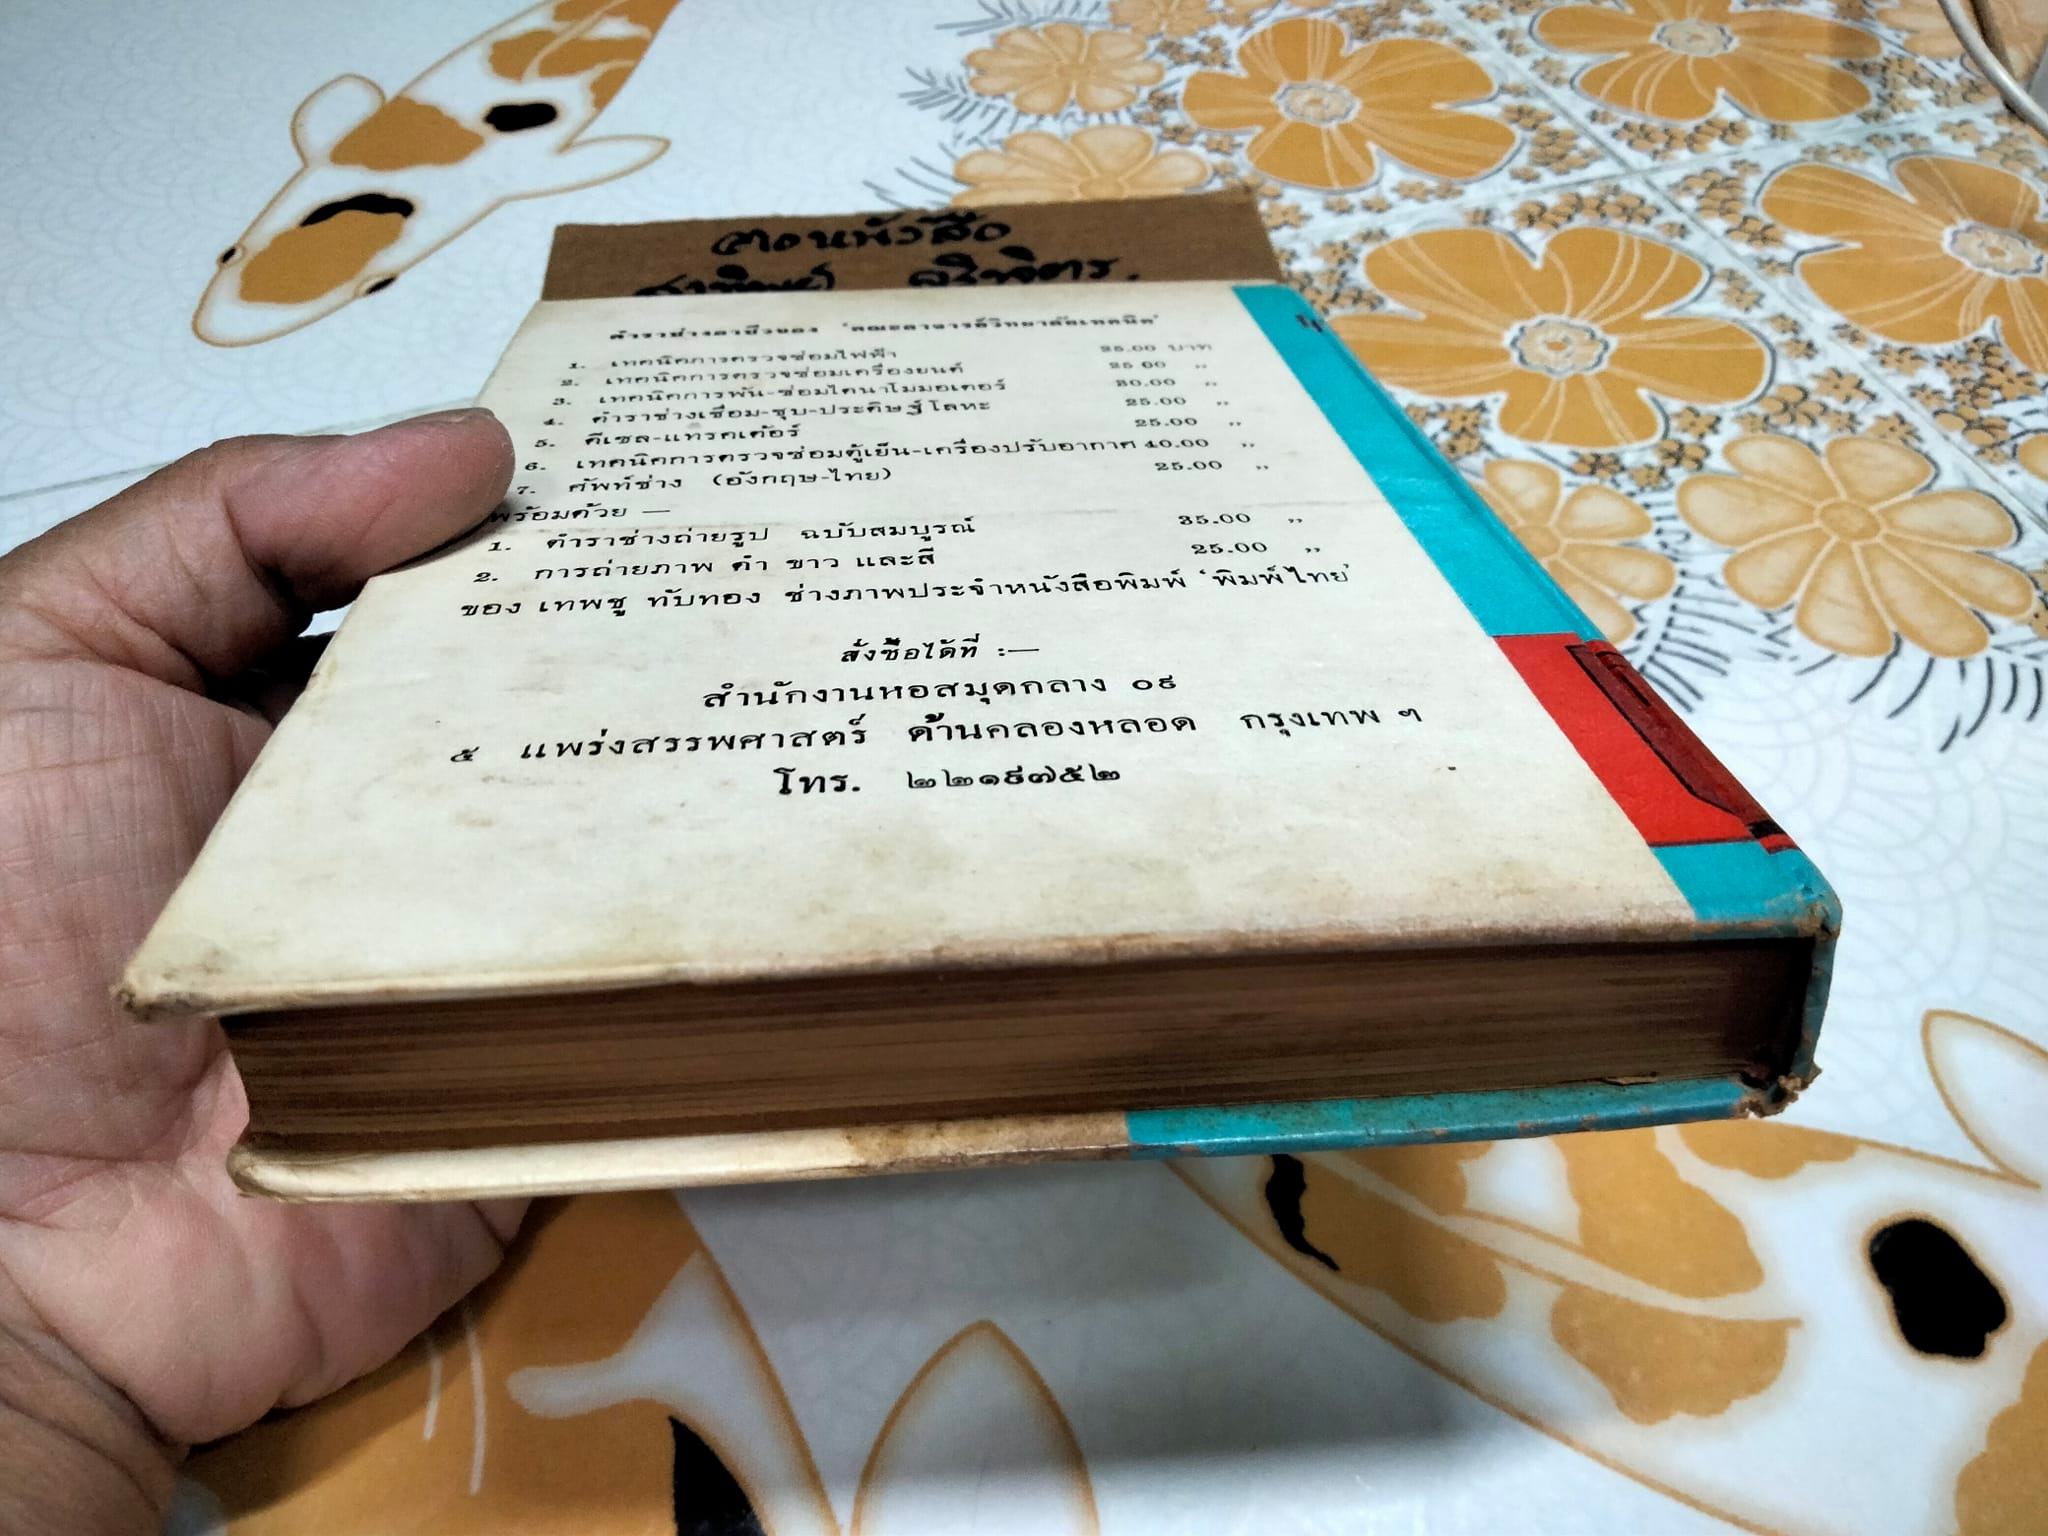 ตอนหังสือ
ตำราช่างอาชีวของ 'คณะอาจารย์วิทยาลัยเทคนิค'
1. เทคนิคการตรวจซ่อมไฟฟ้า 25.00 บาท
2. เทคนิคการตรวจซ่อมเครื่องยนต์ 25 00 ,,
3. เทคนิคการพัน-ซ่อมไดนาโมมอเตอร์ 30.00 ,,
4. ตำราช่างเชื่อม-ชุบ-ประดิษฐ์โลหะ 25.00 ,,
5. ดีเซล-แทรคเต้อร์ 25.00 ,,
6. เทคนิคการตรวจซ่อมตู้เย็น-เครื่องปรับอากาศ 40.00 ,,
7. ศัพท์ช่าง (อังกฤษ-ไทย) 25.00 ,,
พร้อมด้วย —
1. ตำราช่างถ่ายรูป ฉบับสมบูรณ์ 35.00 ,,
2. การถ่ายภาพ ดำ ขาว และสี 25.00 ,,
ของ เทพชู ทับทอง ช่างภาพประจำหนังสือพิมพ์ 'พิมพ์ไทย'
สั่งซื้อได้ที่ :—
สำนักงานหอสมุดกลาง ๐๙
๕ แพร่งสรรพศาสตร์ ด้านคลองหลอด กรุงเทพ ฯ
โทร. ๒๒๑๘๗๕๒